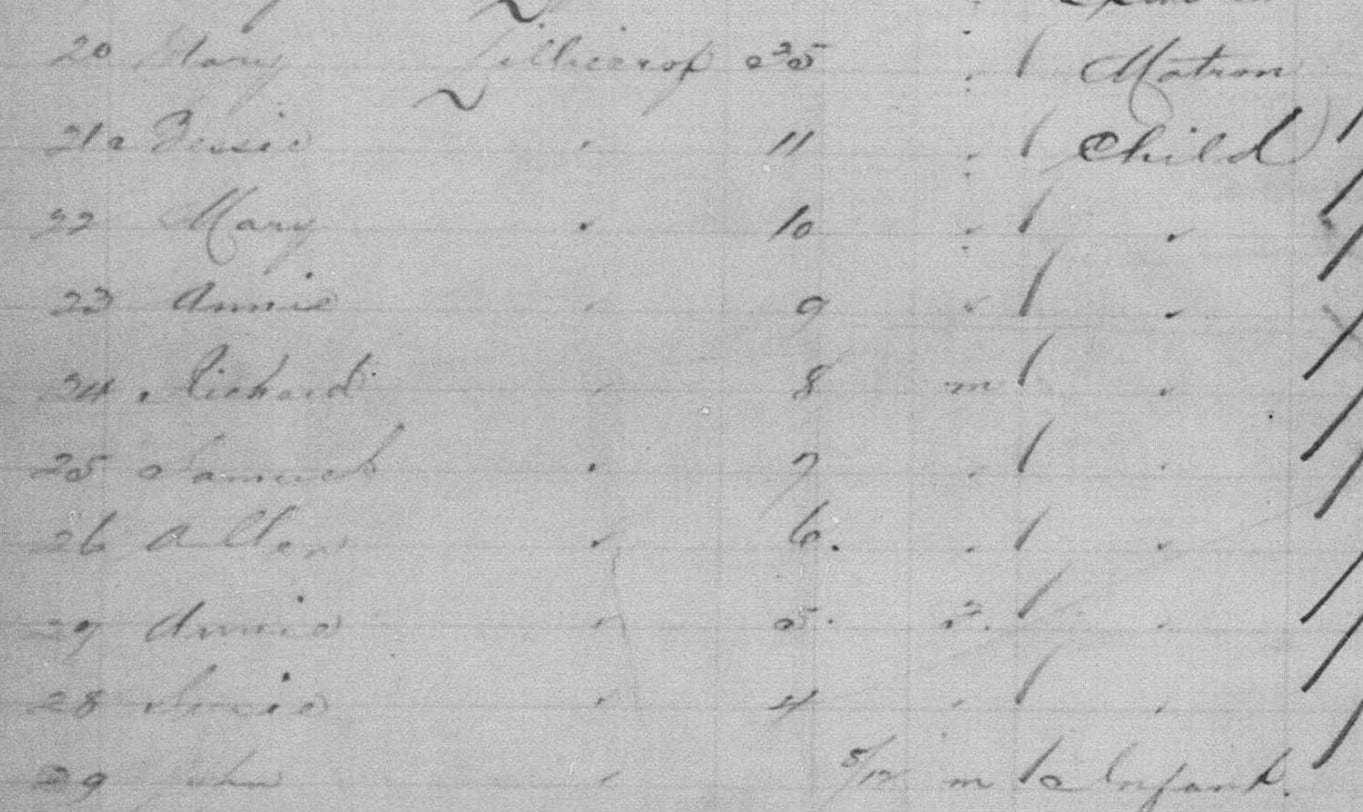 20 Mary Lillicrop 25 " / Matron
21 Bessie " 11 " / Child
22 Mary " 10 " / "
23 Annie " 9 " / "
24 Richard " 8 m / "
25 Samuel " 7 " / "
26 Allen " 6. " / "
27 Annie " 5. / "
28 " 4 " / "
29 John " 5/12 m / Infant.